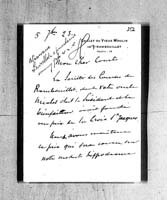 352
5 7bre 23
CHALET DU VIEUX MOULIN
RAMBOUILLET
Mon cher Comte
La Société des Courses de
Rambouillet, dont votre oncle
Nicolas était le Président et le
bienfaiteur, avait fondé
un prix de la Croix St Jacques
Nous avons maintenu
ce prix que nous courons sur
notre modeste hippodrome